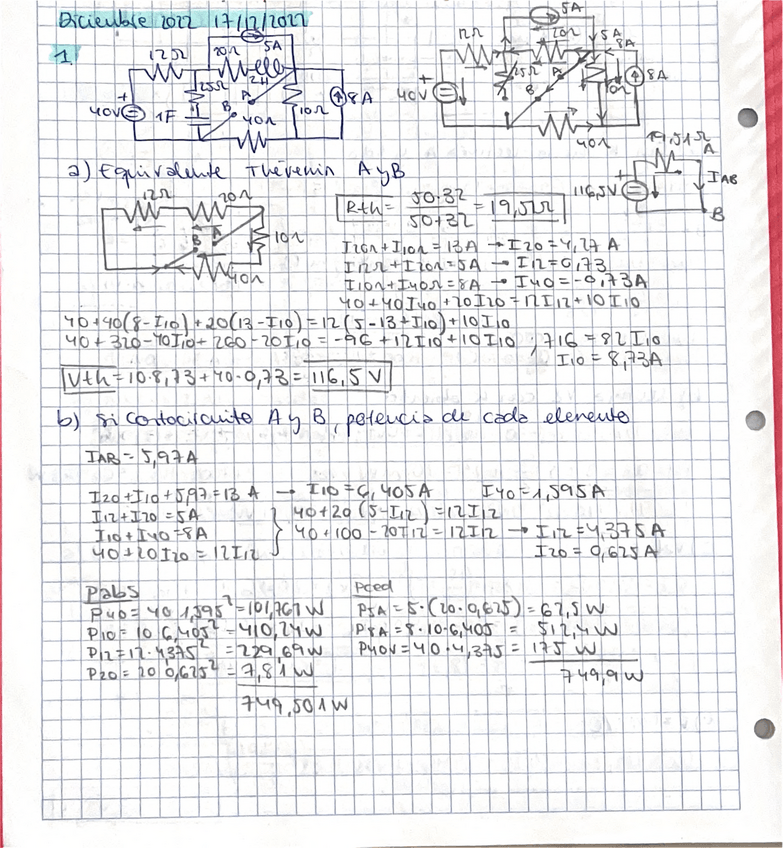 Diciembre 2022 17/12/2022
1.
12Ω 20Ω 5A 2H
25Ω
40V 1F B A 40Ω 10Ω 8A
12Ω 5A 20Ω 5A 8A
40V 25Ω A B 10Ω 8A
40Ω
a) Equivalente Thévenin A y B
12Ω 20Ω
B A 10Ω
40Ω
19,51Ω A
116,5V I_AB
B
Rth = 50·32 / 50+32 = 19,51Ω
I20Ω + I10Ω = 13A → I20 = 4,27 A
I12Ω + I20Ω = 5A → I12 = 0,73
I10Ω + I40Ω = 8A → I40 = -0,73A
40 + 40 I40 + 20 I20 = 12 I12 + 10 I10
40 + 40(8 - I10) + 20(13 - I10) = 12(5 - 13 + I10) + 10 I10
40 + 320 - 40 I10 + 260 - 20 I10 = -96 + 12 I10 + 10 I10 ; 716 = 82 I10
I10 = 8,73A
Vth = 10·8,73 + 40·0,73 = 116,5 V
b) Si cortocircuito A y B, potencia de cada elemento
I_AB = 5,97A
I20 + I10 + 5,97 = 13 A → I10 = 6,405A I40 = 1,595A
I12 + I20 = 5A
I10 + I40 = 8A
40 + 20 I20 = 12 I12
40 + 20(5 - I12) = 12 I12
40 + 100 - 20 I12 = 12 I12 → I12 = 4,375A
I20 = 0,625A
Pabs
P40 = 40·1,595² = 101,761 W
P10 = 10·6,405² = 410,24W
P12 = 12·4,375² = 229,69W
P20 = 20·0,625² = 7,81W
749,501W
Pced
P5A = 5·(20·0,625) = 62,5 W
P8A = 8·10·6,405 = 512,4 W
P40V = 40·4,375 = 175 W
749,9W